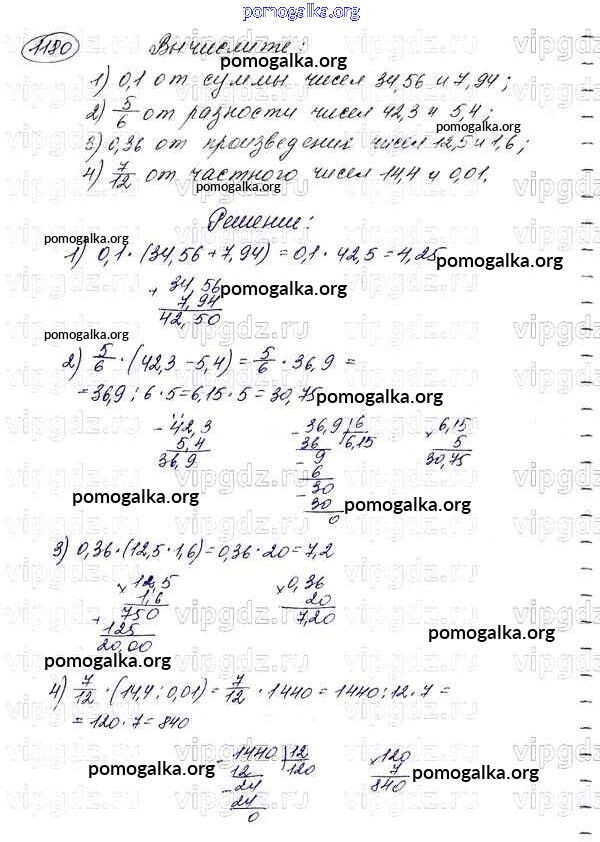 pomogalka.org
1180 Вычислите:
1) 0,1 от суммы чисел 34,56 и 7,94;
2) 5/6 от разности чисел 42,3 и 5,4;
pomogalka.org
3) 0,36 от произведения чисел 12,5 и 1,6;
4) 7/12 от частного чисел 14,4 и 0,01.
pomogalka.org
Решение:
pomogalka.org
1) 0,1 · (34,56 + 7,94) = 0,1 · 42,5 = 4,25
pomogalka.org
+ 34,56
7,94
42,50
pomogalka.org
pomogalka.org
2) 5/6 · (42,3 - 5,4) = 5/6 · 36,9 =
= 36,9 : 6 · 5 = 6,15 · 5 = 30,75
pomogalka.org
- 42,3 - 36,9 | 6 × 6,15
5,4 36 | 6,15 5
36,9 - 9 30,75
6
- 30
30
0
pomogalka.org
pomogalka.org
3) 0,36 · (12,5 · 1,6) = 0,36 · 20 = 7,2
× 12,5 × 0,36
1,6 20
+ 750 7,20
125
20,00
pomogalka.org
pomogalka.org
4) 7/12 · (14,4 : 0,01) = 7/12 · 1440 = 1440 : 12 · 7 =
= 120 · 7 = 840
- 1440 | 12 × 120
12 | 120 7
- 24 840
24
0
pomogalka.org
pomogalka.org
vipgdz.ru